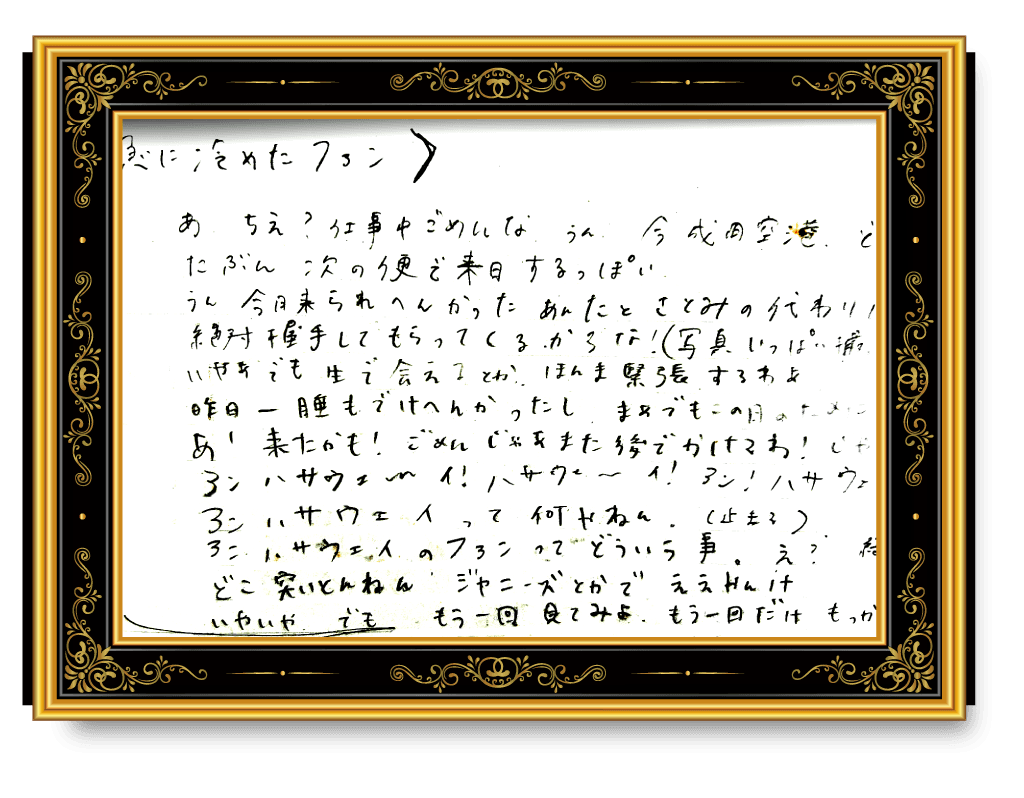 急に冷めたファン〉
あ ちえ?仕事中ごめんな うん 今成田空港 と
たぶん 次の便で来日するっぽい
うん 今日来られへんかった あんたとさとみの代わり
絶対握手してもらってくるからな!(写真いっぱい撮
いやあでも 生で会えるとか ほんま緊張するわぁ
昨日一睡もでけへんかったし まあでもこの日のために
あ! 来たかも! ごめんじゃあまた後でかけるわ! じゃ
アン ハサウェ〜イ! ハサウェ〜イ! アン! ハサウェ
アン ハサウェイって何やねん。(止まる)
アン ハサウェイのファンってどういう事。え?
どこ突いとんねん ジャニーズとかでええやんけ
いやいや でも もう一回見てみよ もう一回だけ もっか